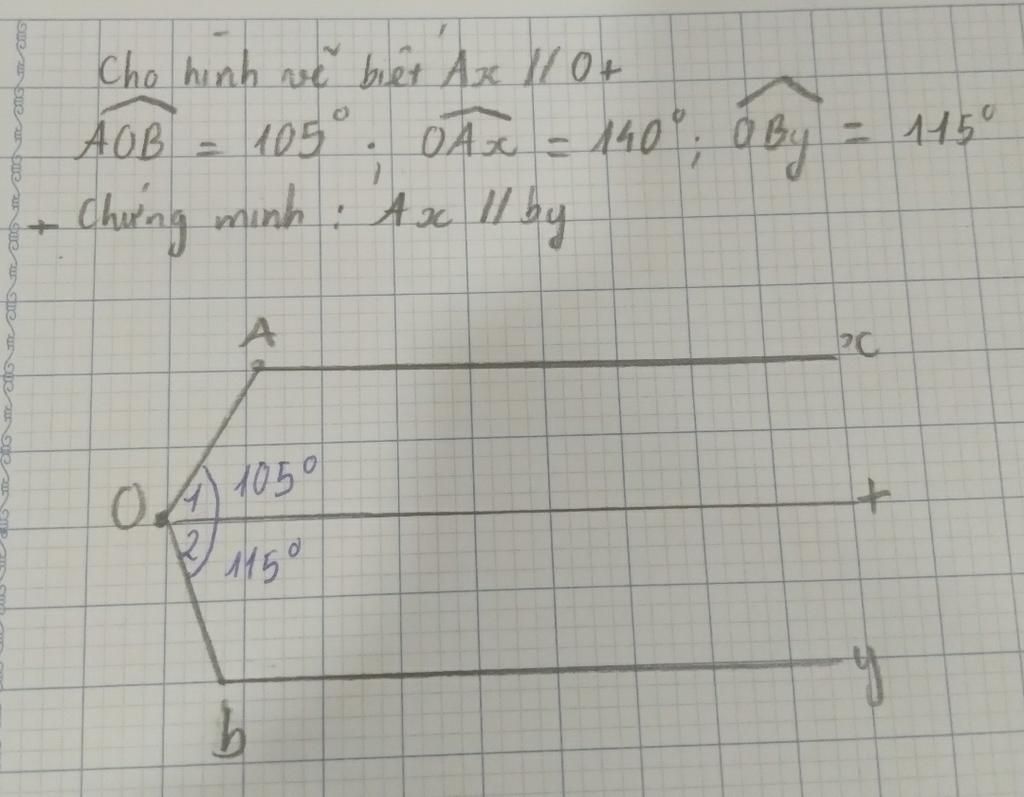 Cho hình vẽ biết Ax // Ot
AOB = 105° ; OAx = 140° ; OBy = 115°
+ Chứng minh : Ax // by
A
x
1 105°
O t
2 115°
y
b